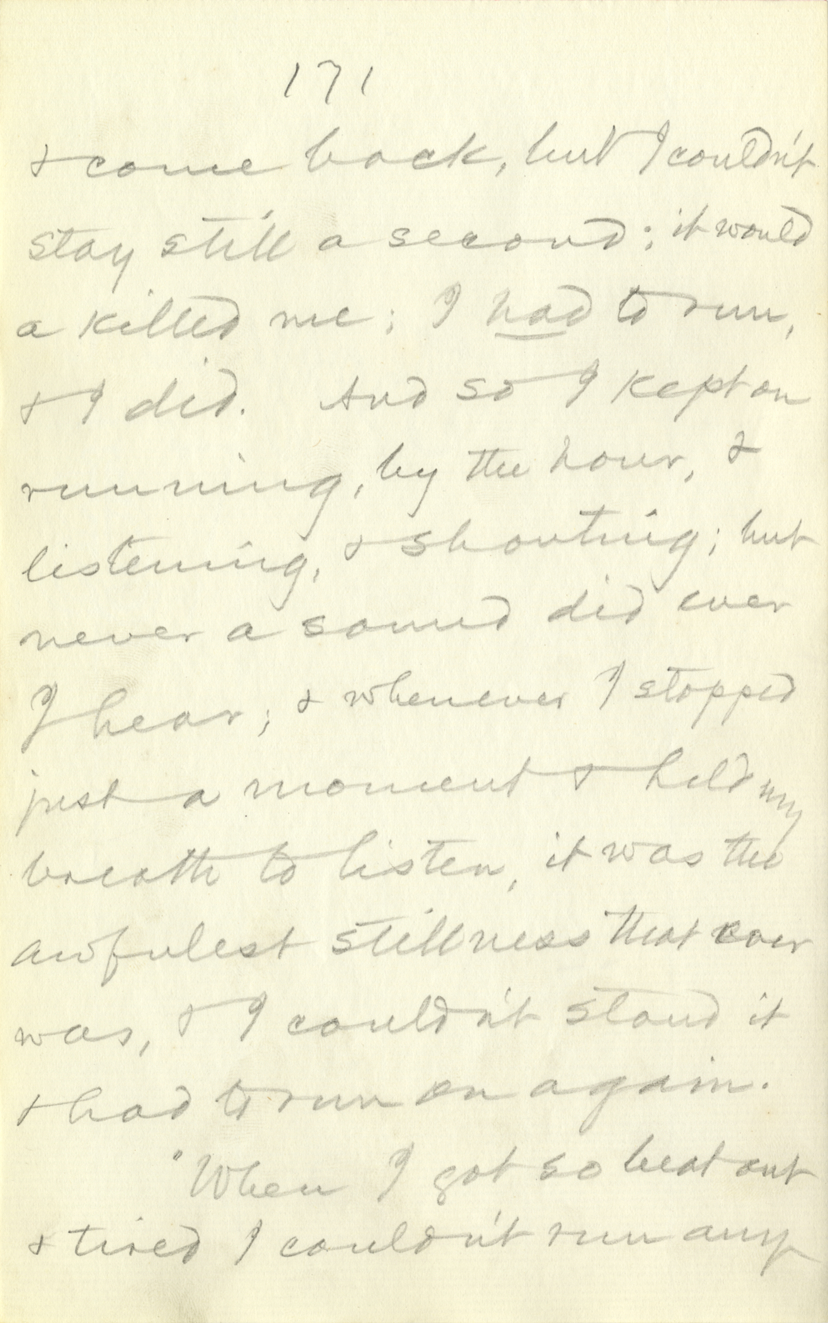 171
& come back, but I couldn't
stay still a second; it would
a killed me; I had to run,
& I did. And so I kept on
running, by the hour, &
listening, & shouting; but
never a sound did ever
I hear; & whenever I stopped
just a moment & held my
breath to listen, it was the
awfulest stillness that ever
was, & I couldn't stand it
& had to run on again.
"When I got so beat out
& tired I couldn't run any